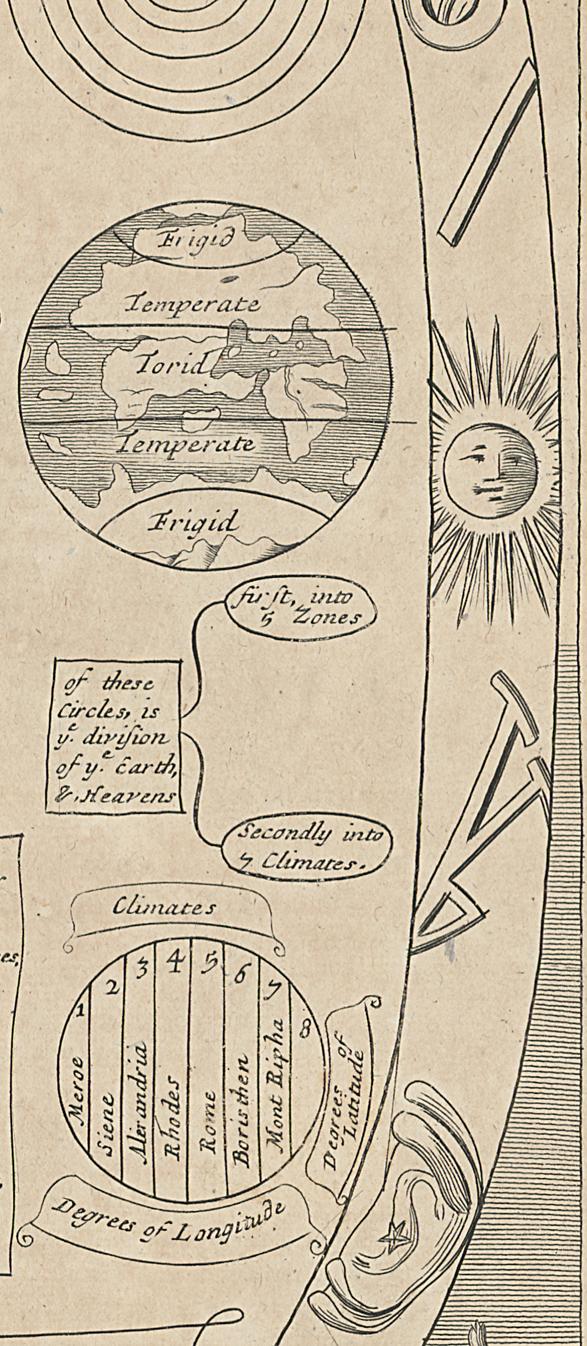 Frigid
Temperate
Torid
Temperate
Frigid
first, into
5 Zones
of these
Circles, is
yᵉ. division
of yᵉ. Earth,
& Heavens
Secondly into
7 Climates.
Climates
1 Meroe
2 Siene
3 Alexandria
4 Rhodes
5 Rome
6 Boristhen
7 Mont Ripha
8
Degrees of
Latitude
Degrees of Longitude
es,